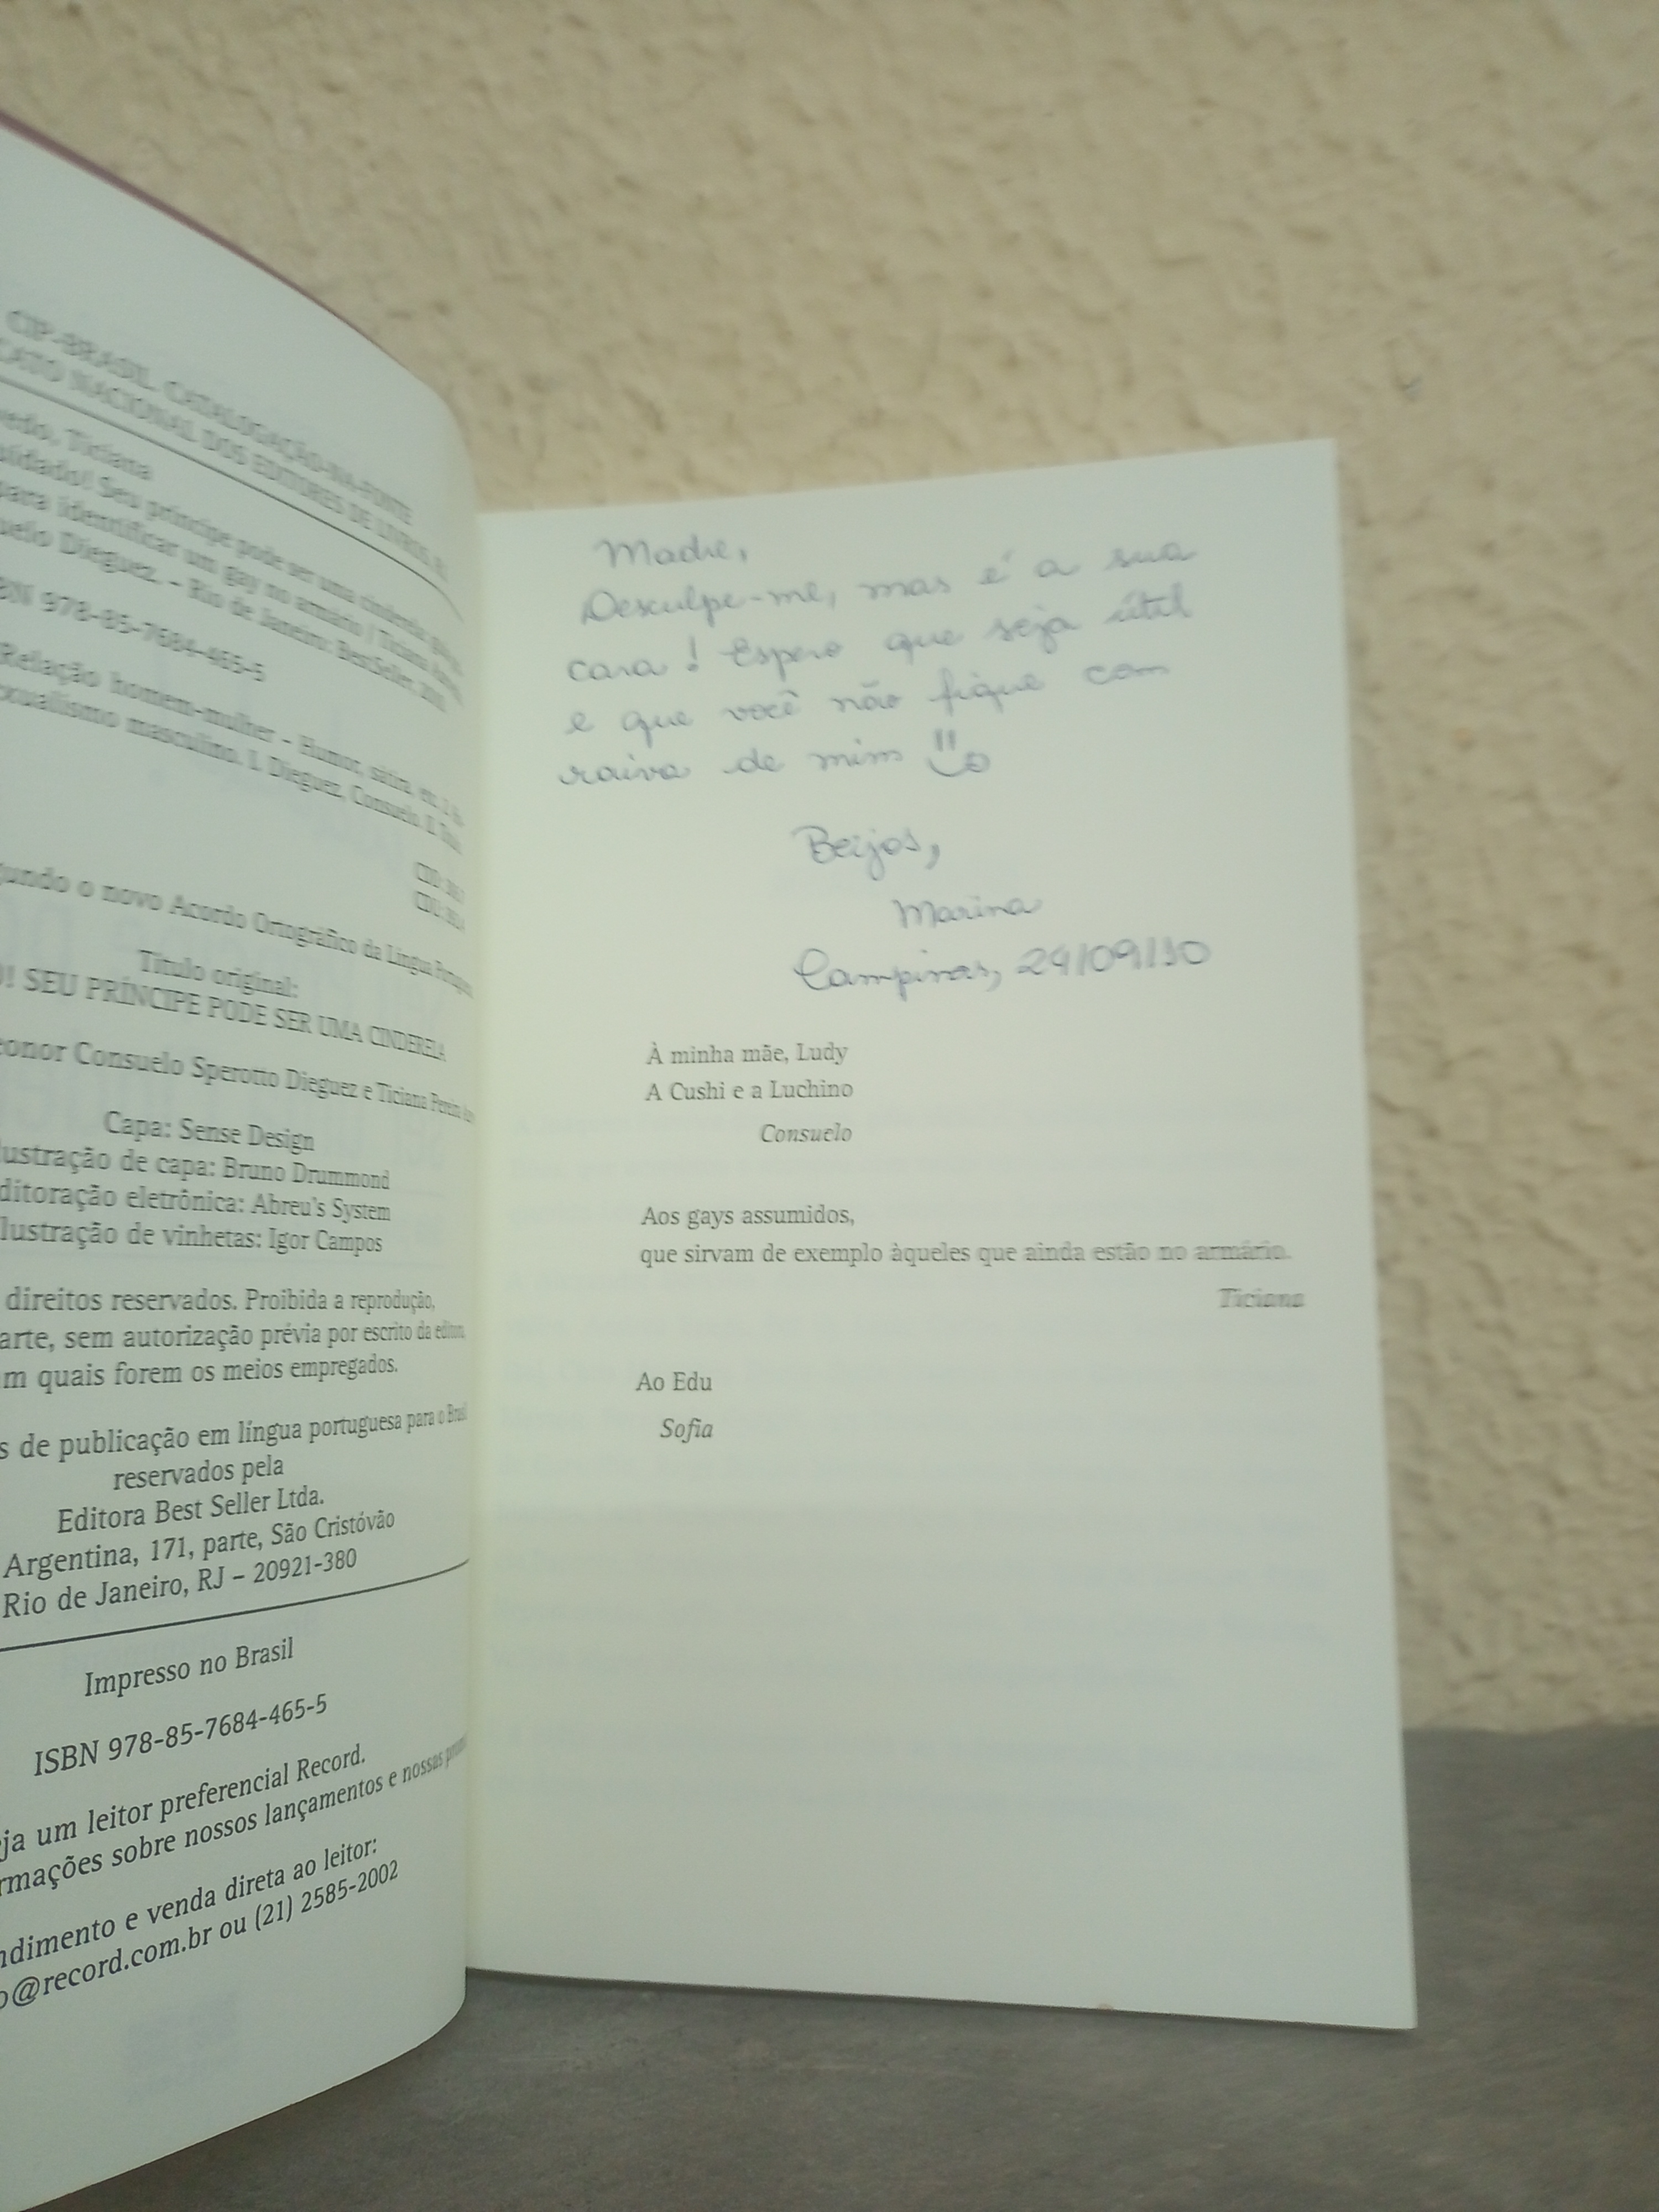 CIP-BRASIL. CATALOGAÇÃO-NA-FONTE
NACIONAL DOS EDITORES DE LIVROS,
Ticiana
Seu príncipe pode ser uma cinderela:
para identificar um gay no armário / Ticiana
Dieguez. – Rio de Janeiro: BestSeller,
978-85-7684-465-5
Relação homem-mulher – Humor, sátira, etc.
masculino. I. Dieguez, Consuelo. II.
CDD:
CDU:
o novo Acordo Ortográfico da Língua
Título original:
SEU PRÍNCIPE PODE SER UMA CINDERELA
Consuelo Sperotto Dieguez e Ticiana
Capa: Sense Design
de capa: Bruno Drummond
eletrônica: Abreu's System
de vinhetas: Igor Campos
direitos reservados. Proibida a reprodução,
arte, sem autorização prévia por escrito da
m quais forem os meios empregados.
s de publicação em língua portuguesa para o Brasil
reservados pela
Editora Best Seller Ltda.
Argentina, 171, parte, São Cristóvão
Rio de Janeiro, RJ – 20921-380
Impresso no Brasil
ISBN 978-85-7684-465-5
ja um leitor preferencial Record.
rmações sobre nossos lançamentos e nossas
ndimento e venda direta ao leitor:
o@record.com.br ou (21) 2585-2002
Madre,
Desculpe-me, mas é a sua
cara! Espero que seja útil
e que você não fique com
raiva de mim
Beijos,
Marina
Campinas, 24/09/10
À minha mãe, Ludy
A Cushi e a Luchino
Consuelo
Aos gays assumidos,
que sirvam de exemplo àqueles que ainda estão no armário.
Ticiana
Ao Edu
Sofia